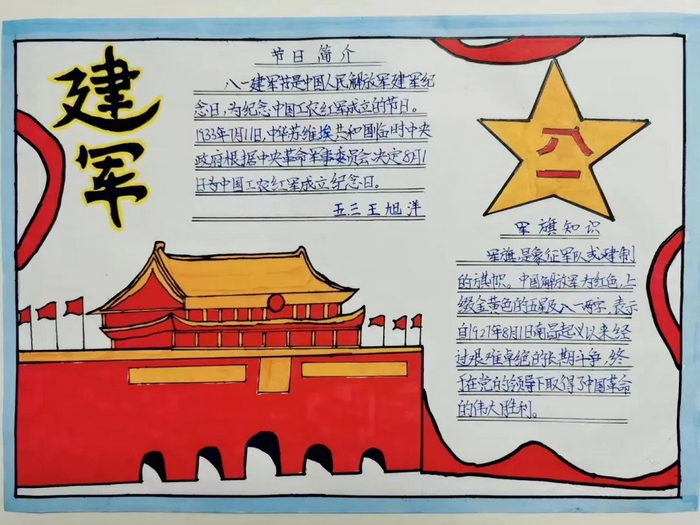 建军
节日简介
八一建军节是中国人民解放军建军纪
念日，为纪念中国工农红军成立的节日。
1933年7月11日，中华苏维埃共和国临时中央
政府根据中央革命军事委员会决定8月1
日为中国工农红军成立纪念日。
五三王旭洋
八一
军旗知识
军旗，是象征军队或建制
的旗帜。中国解放军为红色，上
缀金黄色的五星及八一两字，表示
自1927年8月1日南昌起义以来经
过艰难卓绝的长期斗争，终
于在党的领导下取得了中国革命
的伟大胜利。